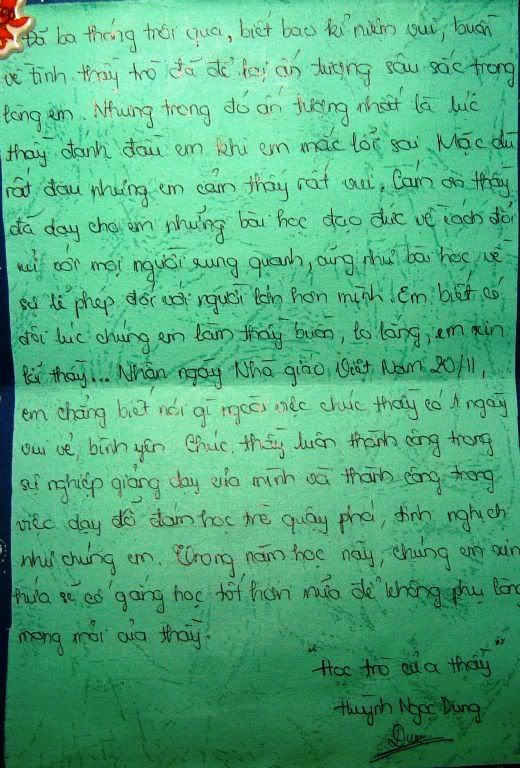 Đã ba tháng trôi qua, biết bao kỉ niệm vui, buồn
về tình thầy trò đã để lại ấn tượng sâu sắc trong
lòng em. Nhưng trong đó ấn tượng nhất là lúc
thầy đánh đau em khi em mắc lỗi sai. Mặc dù
rất đau nhưng em cảm thấy rất vui. Cám ơn thầy
đã dạy cho em những bài học đạo đức về cách đối
xử với mọi người xung quanh, cũng như bài học về
sự lễ phép đối với người lớn hơn mình. Em biết có
đôi lúc chúng em làm thầy buồn, lo lắng, em xin
lỗi thầy... Nhân ngày Nhà giáo Việt Nam 20/11,
em chẳng biết nói gì ngoài việc chúc thầy có 1 ngày
vui vẻ, bình yên. Chúc thầy luôn thành công trong
sự nghiệp giảng dạy của mình và thành công trong
việc dạy dỗ đám học trò quậy phá, tinh nghịch
như chúng em. Trong năm học này, chúng em xin
hứa sẽ cố gắng học tốt hơn nữa để không phụ lòng
mong mỏi của thầy.
"Học trò của thầy"
Huỳnh Ngọc Dung
Dung